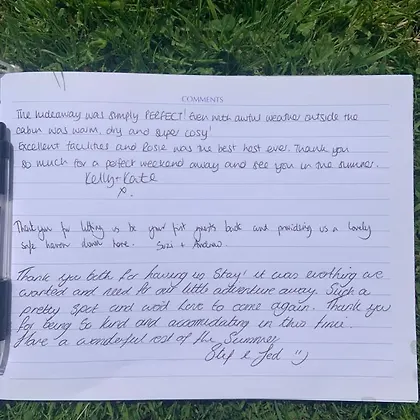 COMMENTS
The hideaway was simply PERFECT! Even with awful weather outside the
cabin was warm, dry and super cosy!
Excellent facilities and Rosie was the best host ever. Thank you
so much for a perfect weekend away and see you in the summer.
Kelly + Kate
x.
Thank you for letting us be your first guests back and providing us a lovely
safe haven down here. Suzi + Andrew.
Thank you both for having us stay! it was everthing we
wanted and need for our little adventure away. Such a
pretty spot and wod love to come again. Thank you
for being so kind and accomidating in this time.
Have a wonderful rest of the Summer
Stef & Jed :)